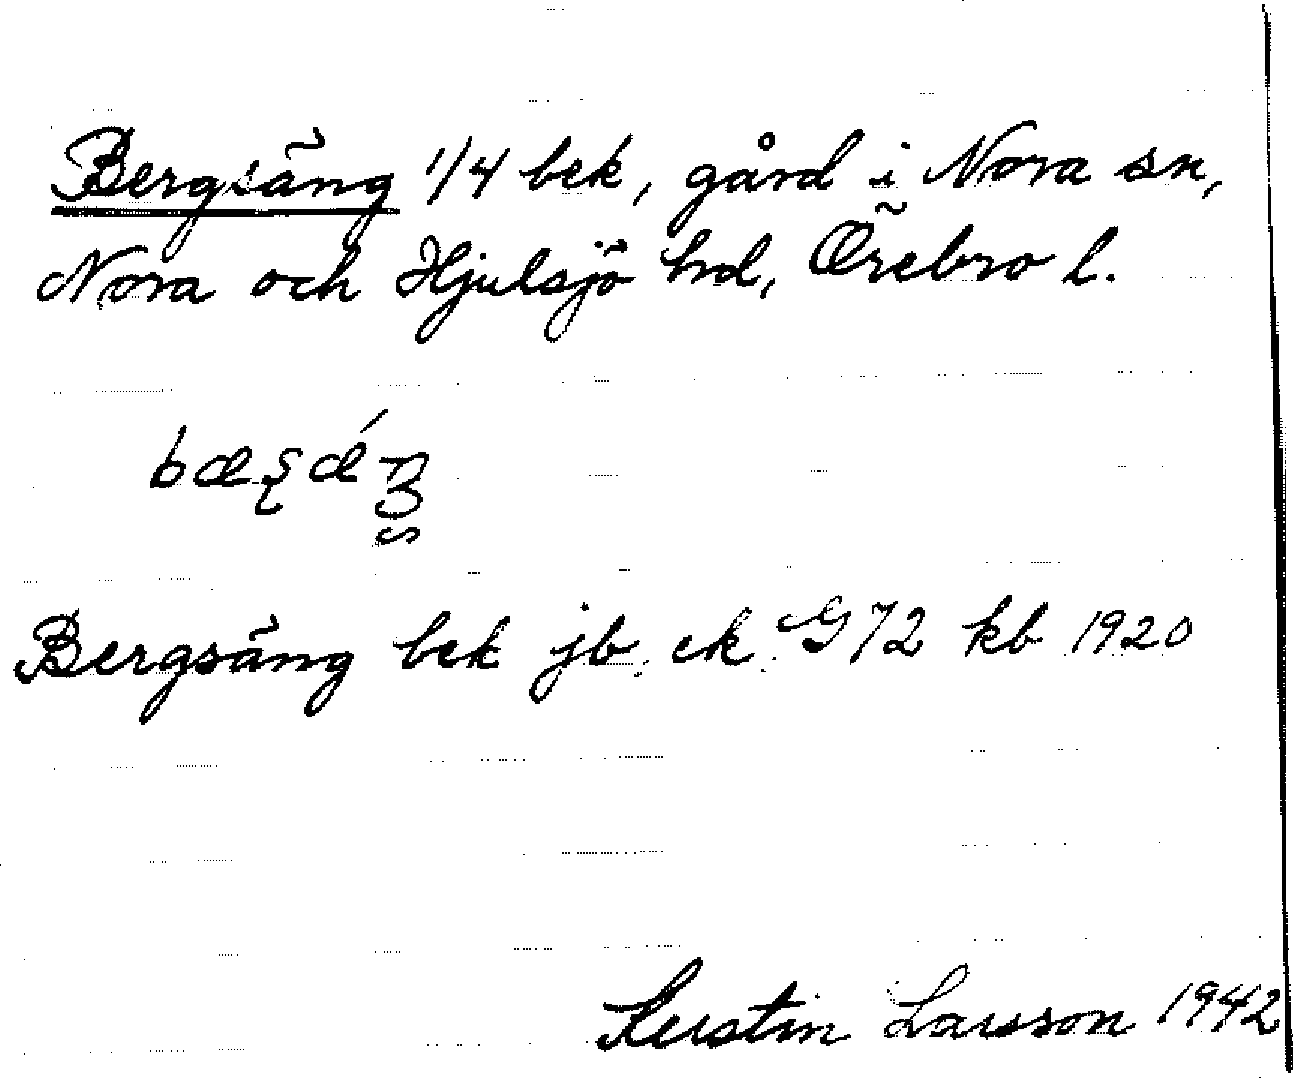 Bergsäng 1/4 bek, gård i Nora sn,
Nora och Hjulsjö hd, Örebro l.
Bergsäng bek jb, ek G72 kb 1920
Kerstin Larsson 1942